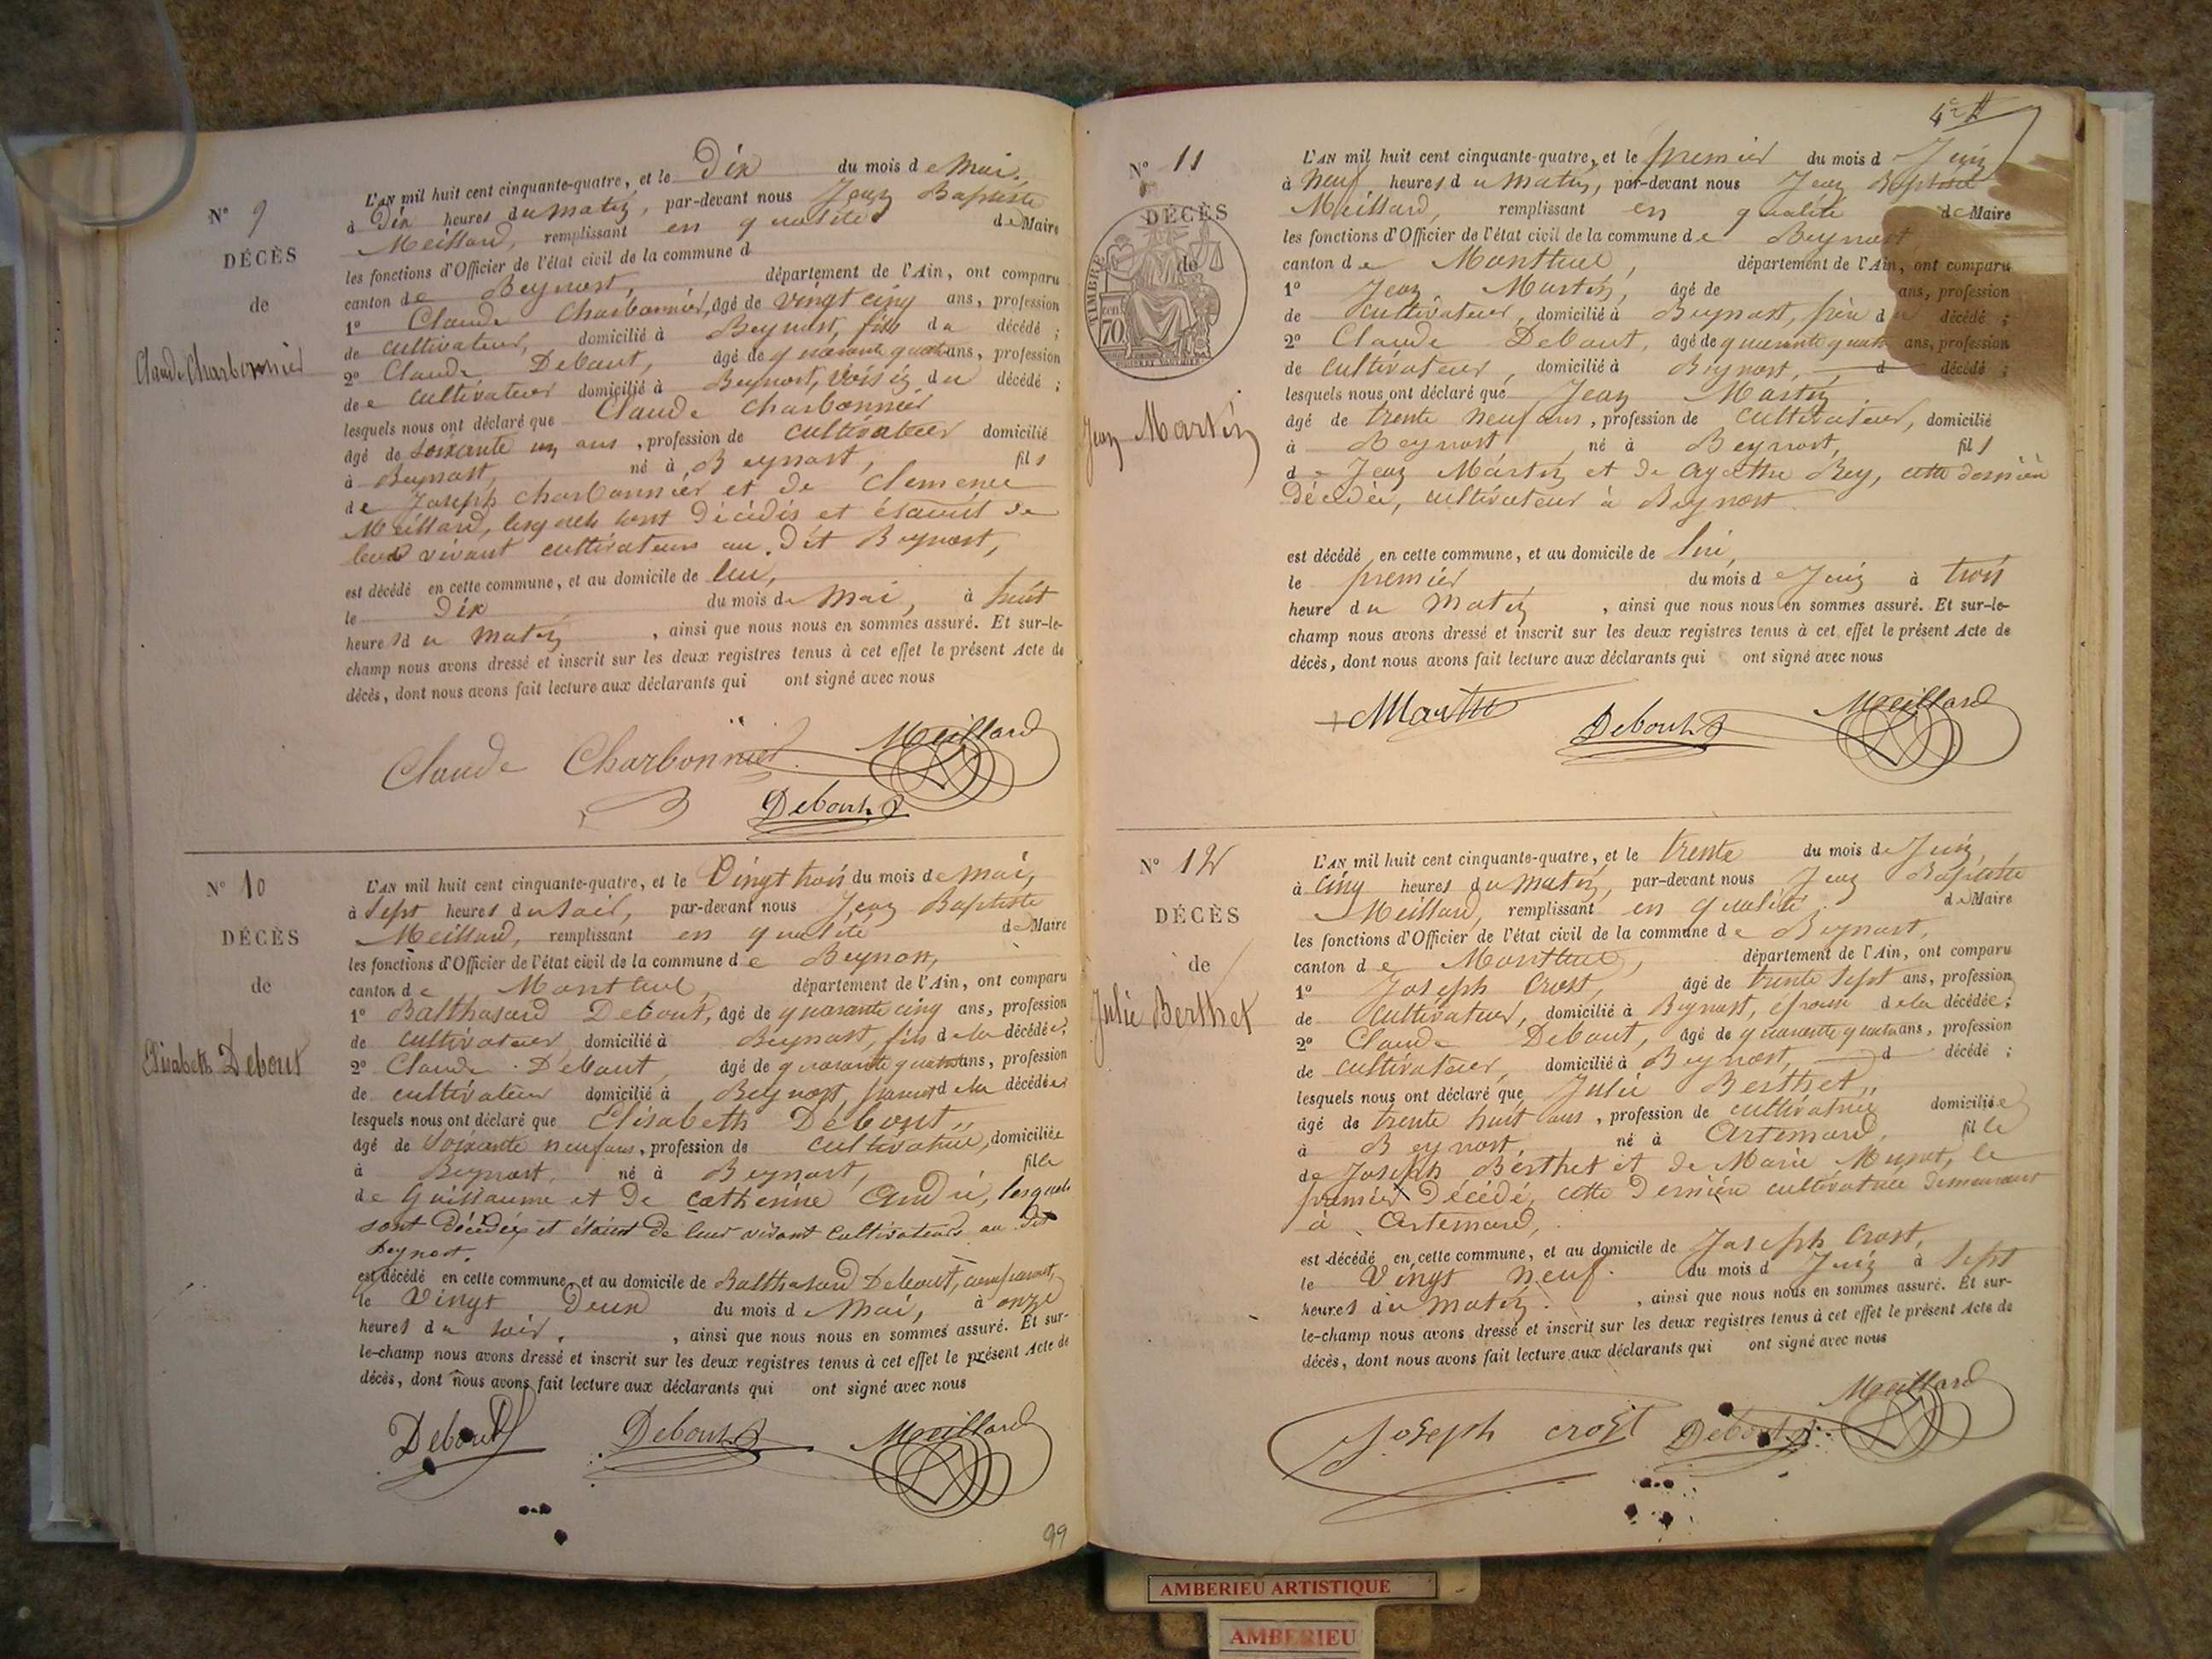 N° 9
DÉCÈS
de
Claude Charbonnier
L'AN mil huit cent cinquante-quatre, et le Dix du mois de Mai,
à Dix heures du matin, par-devant nous Jean Baptiste
Meillard, remplissant en qualité de Maire
les fonctions d'Officier de l'état civil de la commune d
canton de Beynost, département de l'Ain, ont comparu
1° Claude Charbonnier, âgé de vingt cinq ans, profession
de cultivateur, domicilié à Beynost, fils du décédé ;
2° Claude Debout, âgé de quarante quatre ans, profession
de cultivateur domicilié à Beynost, voisin du décédé ;
lesquels nous ont déclaré que Claude Charbonnier
âgé de soixante un ans, profession de cultivateur domicilié
à Beynost, né à Beynost, fils
de Joseph Charbonnier et de Clemence
Meillard, lesquels sont décédés et étaient de
leur vivant cultivateurs au dit Beynost,
est décédé en cette commune, et au domicile de lui,
le Dix du mois de Mai, à huit
heures du matin, ainsi que nous nous en sommes assuré. Et sur-le-
champ nous avons dressé et inscrit sur les deux registres tenus à cet effet le présent Acte de
décès, dont nous avons fait lecture aux déclarants qui ont signé avec nous
Claude Charbonnier Meillard
Debout
N° 10
DÉCÈS
de
Elisabeth Debout
L'AN mil huit cent cinquante-quatre, et le Vingt trois du mois de Mai,
à Sept heures du soir, par-devant nous Jean Baptiste
Meillard, remplissant en qualité de Maire
les fonctions d'Officier de l'état civil de la commune de Beynost,
canton de Montluel, département de l'Ain, ont comparu
1° Balthasard Debout, âgé de quarante cinq ans, profession
de cultivateur domicilié à Beynost, fils de la décédée,
2° Claude Debout, âgé de quarante quatre ans, profession
de cultivateur domicilié à Beynost, parent de la décédée
lesquels nous ont déclaré que Elisabeth Debout,,
âgé de soixante neuf ans, profession de cultivatrice, domiciliée
à Beynost, né à Beynost, fille
de Guillaume et de Catherine André, lesquels
sont décédés et étaient de leur vivant cultivateurs au dit
Beynost.
est décédé en cette commune, et au domicile de Balthasard Debout, comparant,
le Vingt Deux du mois de Mai, à onze
heures du soir, ainsi que nous nous en sommes assuré. Et sur-
le-champ nous avons dressé et inscrit sur les deux registres tenus à cet effet le présent Acte de
décès, dont nous avons fait lecture aux déclarants qui ont signé avec nous
Debout Debout Meillard
99
N° 11
DÉCÈS
de
TIMBRE
70
Jean Martin
L'AN mil huit cent cinquante-quatre, et le premier du mois d Juin
à Neuf heures du Matin, par-devant nous Jean Baptiste
Meillard, remplissant en qualité de Maire
les fonctions d'Officier de l'état civil de la commune de Beynost
canton de Montluel, département de l'Ain, ont comparu
1° Jean Martin, âgé de ans, profession
de cultivateur, domicilié à Beynost, père d décédé ;
2° Claude Debout, âgé de quarante quatre ans, profession
de cultivateur, domicilié à Beynost, d décédé ;
lesquels nous ont déclaré que Jean Martin
âgé de trente neuf ans, profession de cultivateur, domicilié
à Beynost, né à Beynost, fils
de Jean Martin et de Agathe Bey, cette dernière
décédée, cultivateur à Beynost
est décédé en cette commune, et au domicile de lui,
le premier du mois de Juin à trois
heure du matin, ainsi que nous nous en sommes assuré. Et sur-le-
champ nous avons dressé et inscrit sur les deux registres tenus à cet effet le présent Acte de
décès, dont nous avons fait lecture aux déclarants qui ont signé avec nous
Martin Debout Meillard
N° 12
DÉCÈS
de
Julie Berthet
L'AN mil huit cent cinquante-quatre, et le trente du mois de Juin,
à cinq heures du matin, par-devant nous Jean Baptiste
Meillard, remplissant en qualité de Maire
les fonctions d'Officier de l'état civil de la commune de Beynost,
canton de Montluel, département de l'Ain, ont comparu
1° Joseph Crost, âgé de trente sept ans, profession
de cultivateur, domicilié à Beynost, époux de la décédée ;
2° Claude Debout, âgé de quarante quatre ans, profession
de cultivateur, domicilié à Beynost, d décédé ;
lesquels nous ont déclaré que Julie Berthet,,
âgé de trente huit ans, profession de cultivatrice domiciliée
à Beynost, né à Artemard, fille
de Joseph Berthet et de Marie Munet, le
premier décédé, cette dernière cultivatrice demeurant
à Artemard,
est décédé en cette commune, et au domicile de Joseph Crost,
le Vingt neuf du mois d Juin à sept
heures du matin, ainsi que nous nous en sommes assuré. Et sur-
le-champ nous avons dressé et inscrit sur les deux registres tenus à cet effet le présent Acte de
décès, dont nous avons fait lecture aux déclarants qui ont signé avec nous
Joseph crost Debout Meillard
AMBERIEU ARTISTIQUE
AMBERIEU